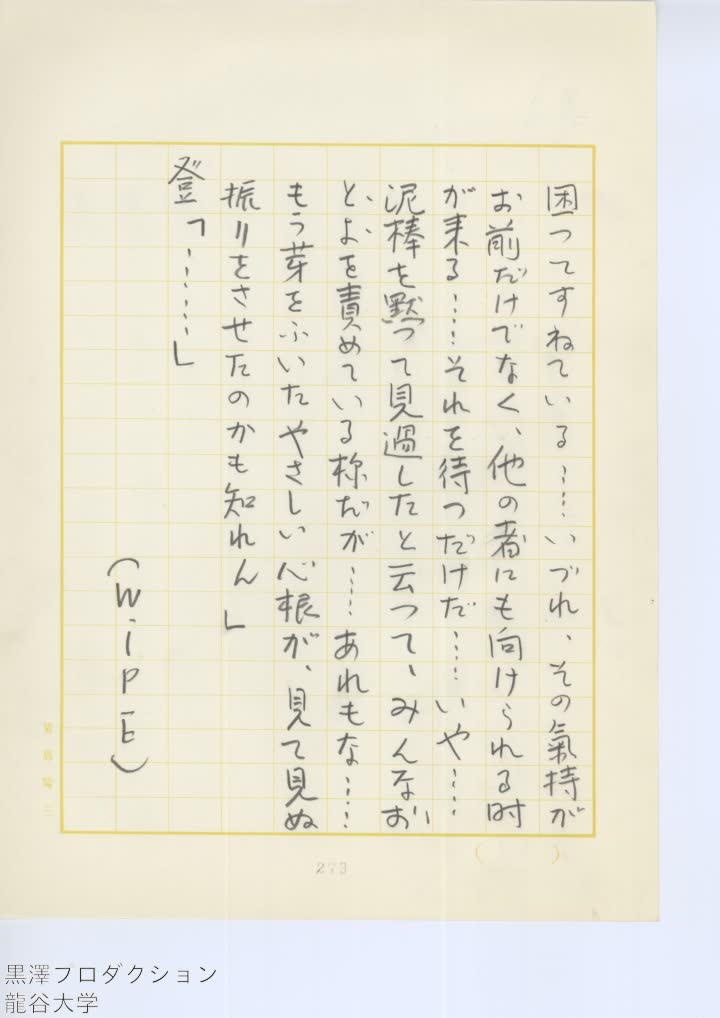 困つてすねている……いづれ、その氣持が
お前だけでなく、他の者にも向けられる時
が来る……それを待つだけだ……いや……
泥棒を黙つて見過したと云つて、みんなお
とよを責めている様だが……あれもな……
もう芽をふいたやさしい心根が、見て見ぬ
振りをさせたのかも知れん」
登「……」
（WIPE）
273
黒澤プロダクション
龍谷大学